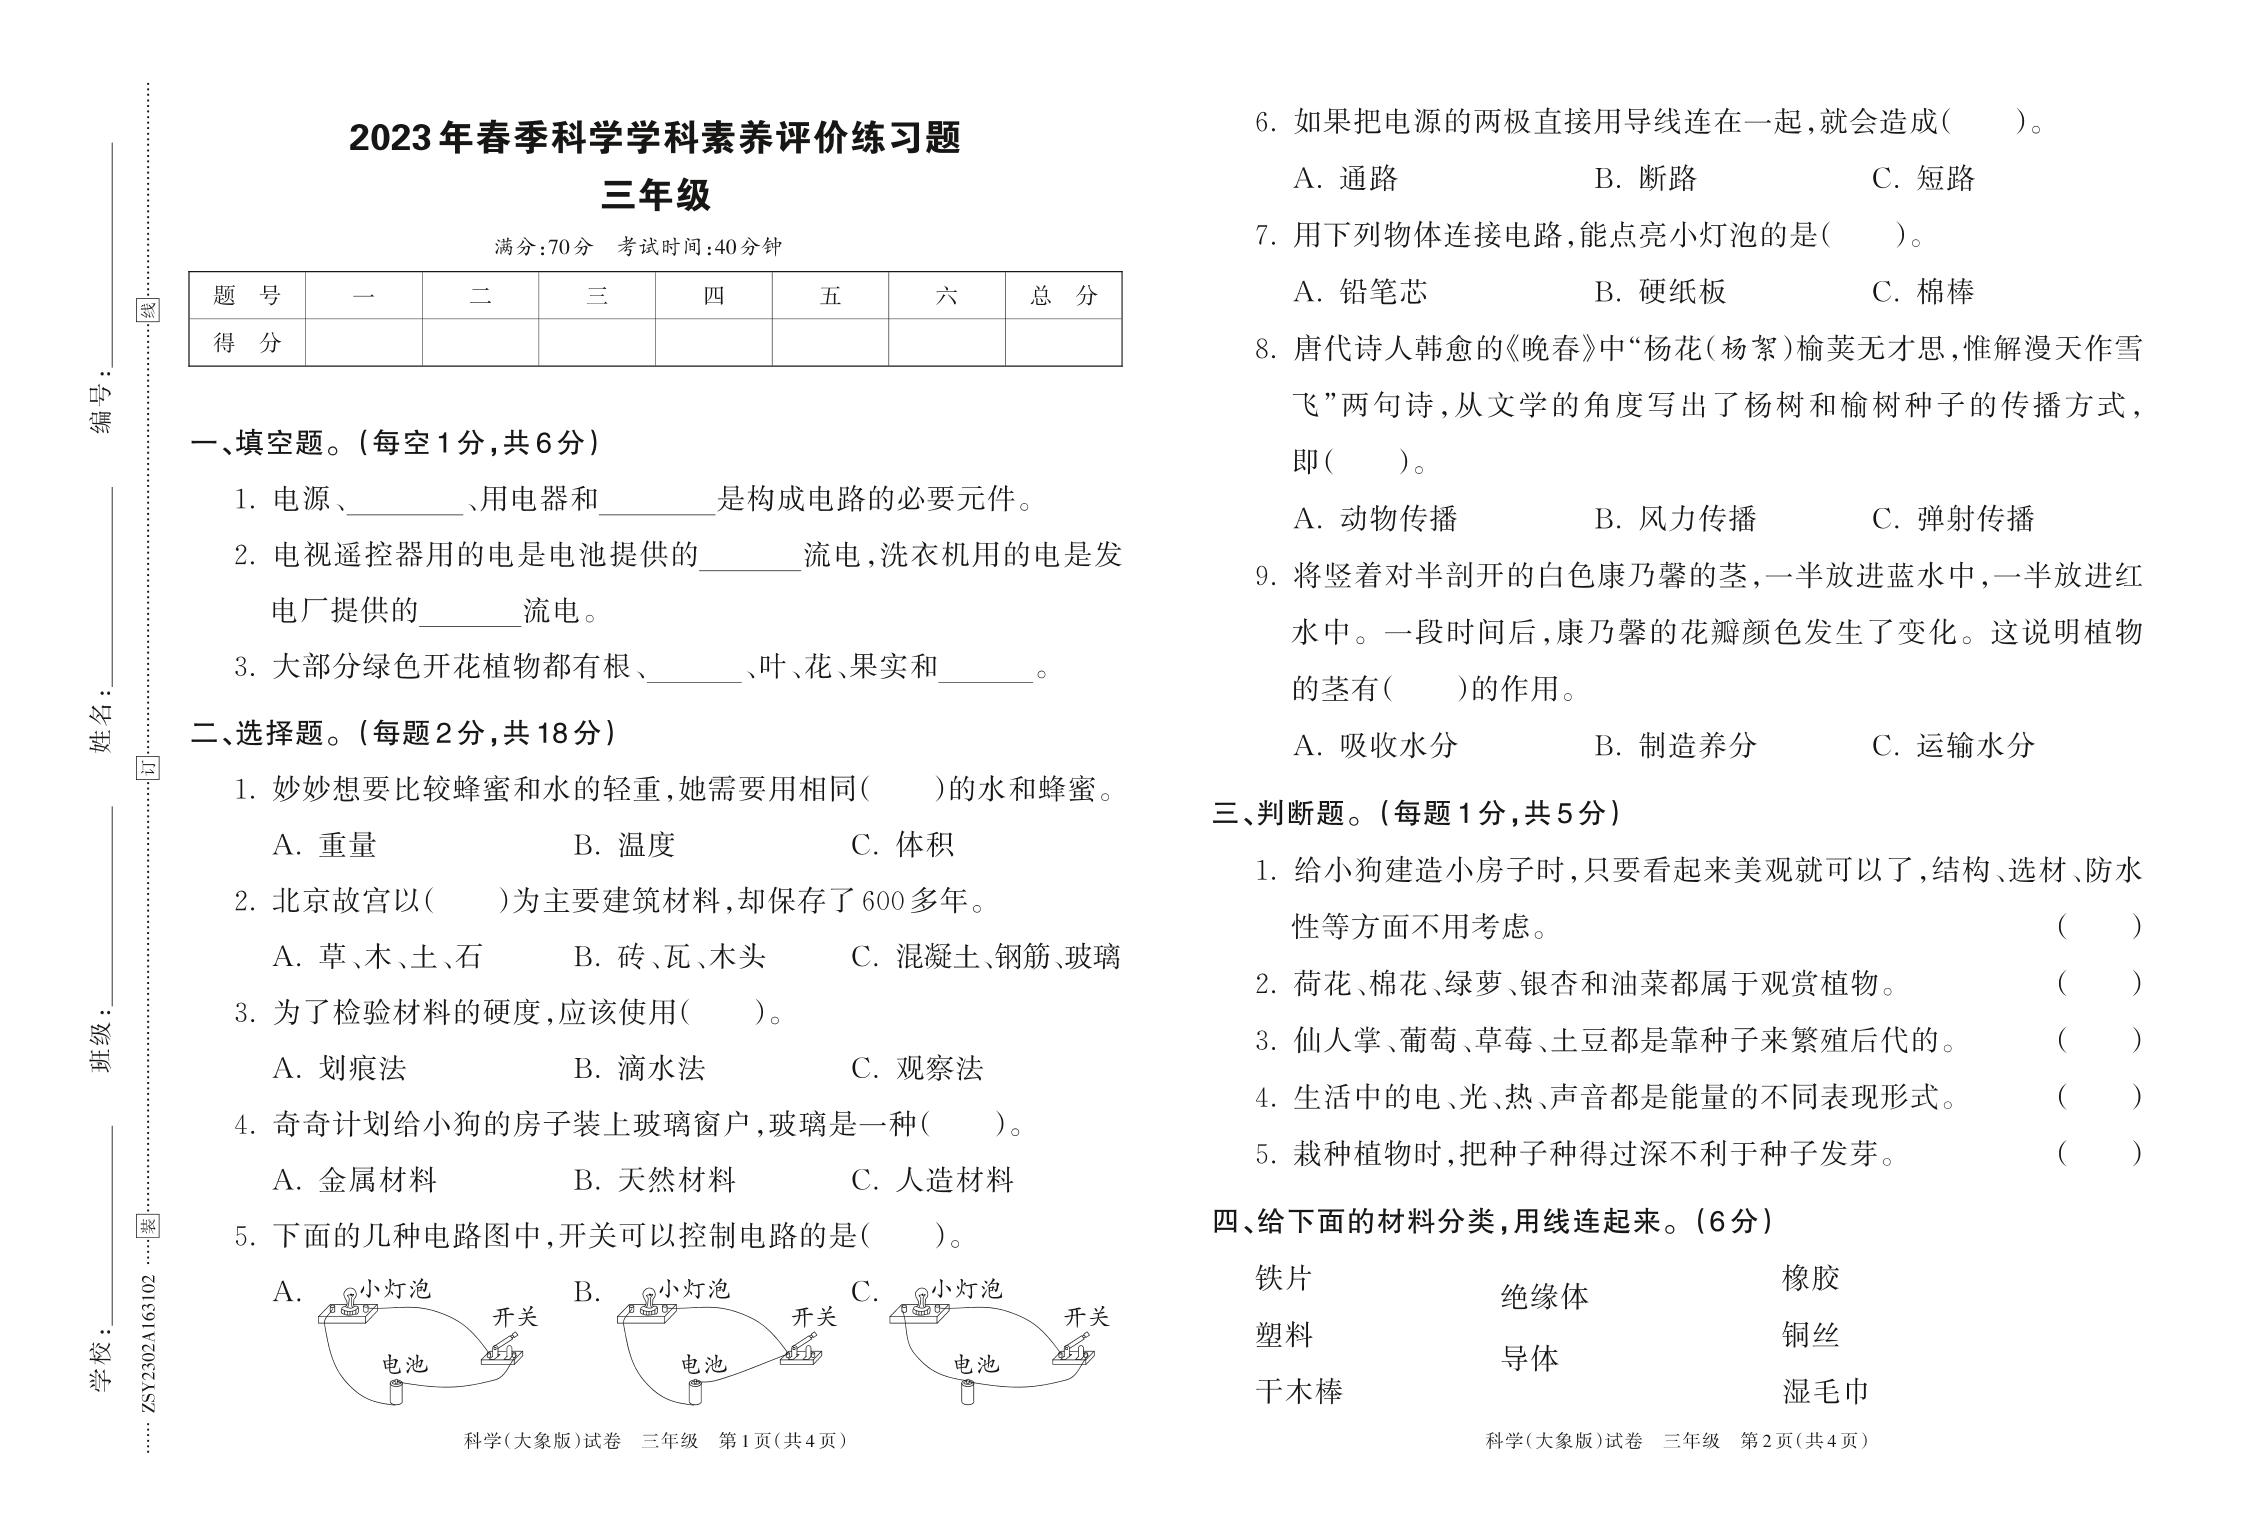 编号:
姓名:
班级:
学校:
线
订
装
ZSY2302A163102
2023年春季科学学科素养评价练习题
三年级
满分:70分 考试时间:40分钟
题 号 一 二 三 四 五 六 总 分
得 分
一、填空题。(每空1分,共6分)
1. 电源、________、用电器和________是构成电路的必要元件。
2. 电视遥控器用的电是电池提供的_______流电,洗衣机用的电是发
电厂提供的_______流电。
3. 大部分绿色开花植物都有根、______、叶、花、果实和______。
二、选择题。(每题2分,共18分)
1. 妙妙想要比较蜂蜜和水的轻重,她需要用相同( )的水和蜂蜜。
A. 重量 B. 温度 C. 体积
2. 北京故宫以( )为主要建筑材料,却保存了600多年。
A. 草、木、土、石 B. 砖、瓦、木头 C. 混凝土、钢筋、玻璃
3. 为了检验材料的硬度,应该使用( )。
A. 划痕法 B. 滴水法 C. 观察法
4. 奇奇计划给小狗的房子装上玻璃窗户,玻璃是一种( )。
A. 金属材料 B. 天然材料 C. 人造材料
5. 下面的几种电路图中,开关可以控制电路的是( )。
A. 小灯泡 B. 小灯泡 C. 小灯泡
开关 开关 开关
电池 电池 电池
科学(大象版)试卷 三年级 第1页(共4页)
6. 如果把电源的两极直接用导线连在一起,就会造成( )。
A. 通路 B. 断路 C. 短路
7. 用下列物体连接电路,能点亮小灯泡的是( )。
A. 铅笔芯 B. 硬纸板 C. 棉棒
8. 唐代诗人韩愈的《晚春》中“杨花(杨絮)榆荚无才思,惟解漫天作雪
飞”两句诗,从文学的角度写出了杨树和榆树种子的传播方式,
即( )。
A. 动物传播 B. 风力传播 C. 弹射传播
9. 将竖着对半剖开的白色康乃馨的茎,一半放进蓝水中,一半放进红
水中。一段时间后,康乃馨的花瓣颜色发生了变化。这说明植物
的茎有( )的作用。
A. 吸收水分 B. 制造养分 C. 运输水分
三、判断题。(每题1分,共5分)
1. 给小狗建造小房子时,只要看起来美观就可以了,结构、选材、防水
性等方面不用考虑。 ( )
2. 荷花、棉花、绿萝、银杏和油菜都属于观赏植物。 ( )
3. 仙人掌、葡萄、草莓、土豆都是靠种子来繁殖后代的。 ( )
4. 生活中的电、光、热、声音都是能量的不同表现形式。 ( )
5. 栽种植物时,把种子种得过深不利于种子发芽。 ( )
四、给下面的材料分类,用线连起来。(6分)
铁片 橡胶
绝缘体
塑料 铜丝
导体
干木棒 湿毛巾
科学(大象版)试卷 三年级 第2页(共4页)